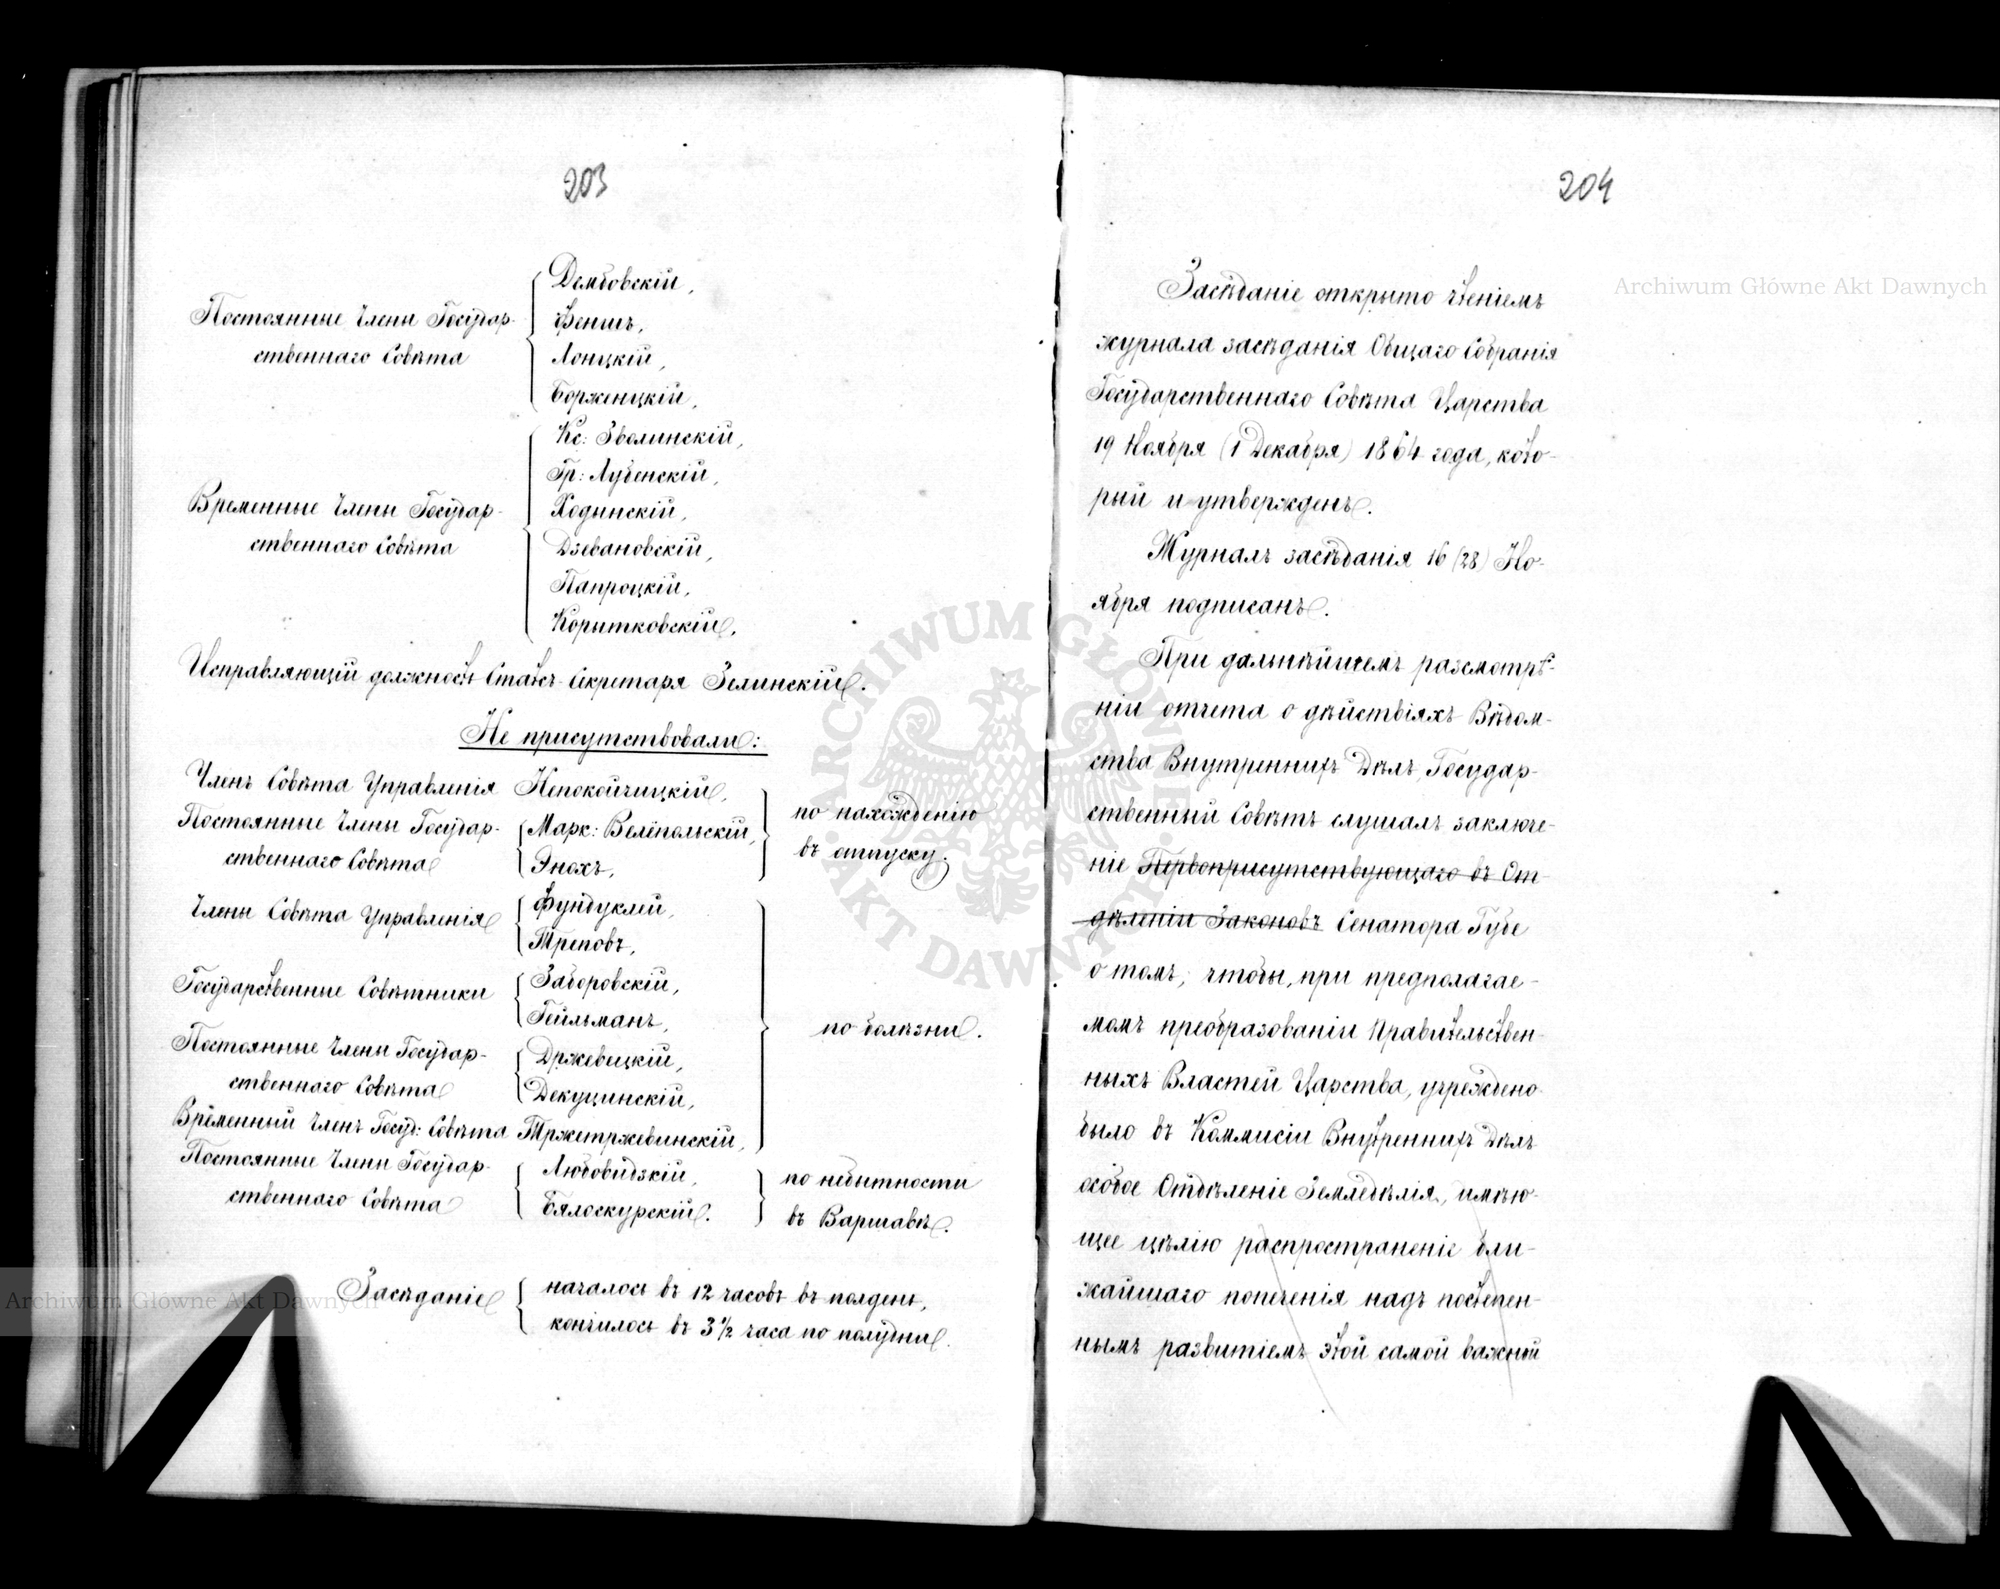 203
Постоянные Члены Государ-
ственнаго Совѣта
Дембовскій,
Феншъ,
Лонцкій,
Борженцкій,
Временные Члены Государ-
ственнаго Совѣта
Кс: Зволинскій,
Гр: Лубенскій,
Ходынскій,
Дзевановскій,
Папроцкій,
Коритковскій,
Исправляющій должность Статсъ-Секретаря Зелинскій.
Не присутствовали:
Членъ Совѣта Управленія Непокойчицкій,
Постоянные Члены Государ-
ственнаго Совѣта
Марк: Велёпольскій,
Энохъ,
по нахожденію
въ отпуску.
Члены Совѣта Управленія
Фундуклей,
Треповъ,
Государственные Совѣтники
Заборовскій,
Гейльманъ,
Постоянные Члены Государ-
ственнаго Совѣта
Држевицкій,
Декуцинскій,
Временный Членъ Госуд: Совѣта Тржетржевинскій,
по болѣзни.
Постоянные Члены Государ-
ственнаго Совѣта
Любовидзкій,
Бялоскурскій.
по небытности
въ Варшавѣ.
Засѣданіе
началось въ 12 часовъ въ полдень,
кончилось въ 3 1/2 часа по полудни.
204
Засѣданіе открыто чтеніемъ
журнала засѣданія Общаго Собранія
Государственнаго Совѣта Царства
19 Ноября (1 Декабря) 1864 года, кото-
рый и утвержденъ.
Журналъ засѣданія 16 (28) Но-
ября подписанъ.
При дальнѣйшемъ разсмотрѣ-
ніи отчета о дѣйствіяхъ Вѣдом-
ства Внутреннихъ Дѣлъ, Государ-
ственный Совѣтъ слушалъ заключе-
ніе Первоприсутствующаго въ От-
дѣленіи Законовъ Сенатора Губе
о томъ, чтобы, при предполагае-
момъ преобразованіи Правительствен-
ныхъ Властей Царства, учреждено
было въ Коммисіи Внутреннихъ Дѣлъ
особое Отдѣленіе Земледѣлія, имѣю-
щее цѣлію распространеніе бли-
жайшаго попеченія надъ постепен-
нымъ развитіемъ этой самой важной
Archiwum Główne Akt Dawnych
Archiwum Główne Akt Dawnych
ARCHIWUM GŁÓWNE AKT DAWNYCH